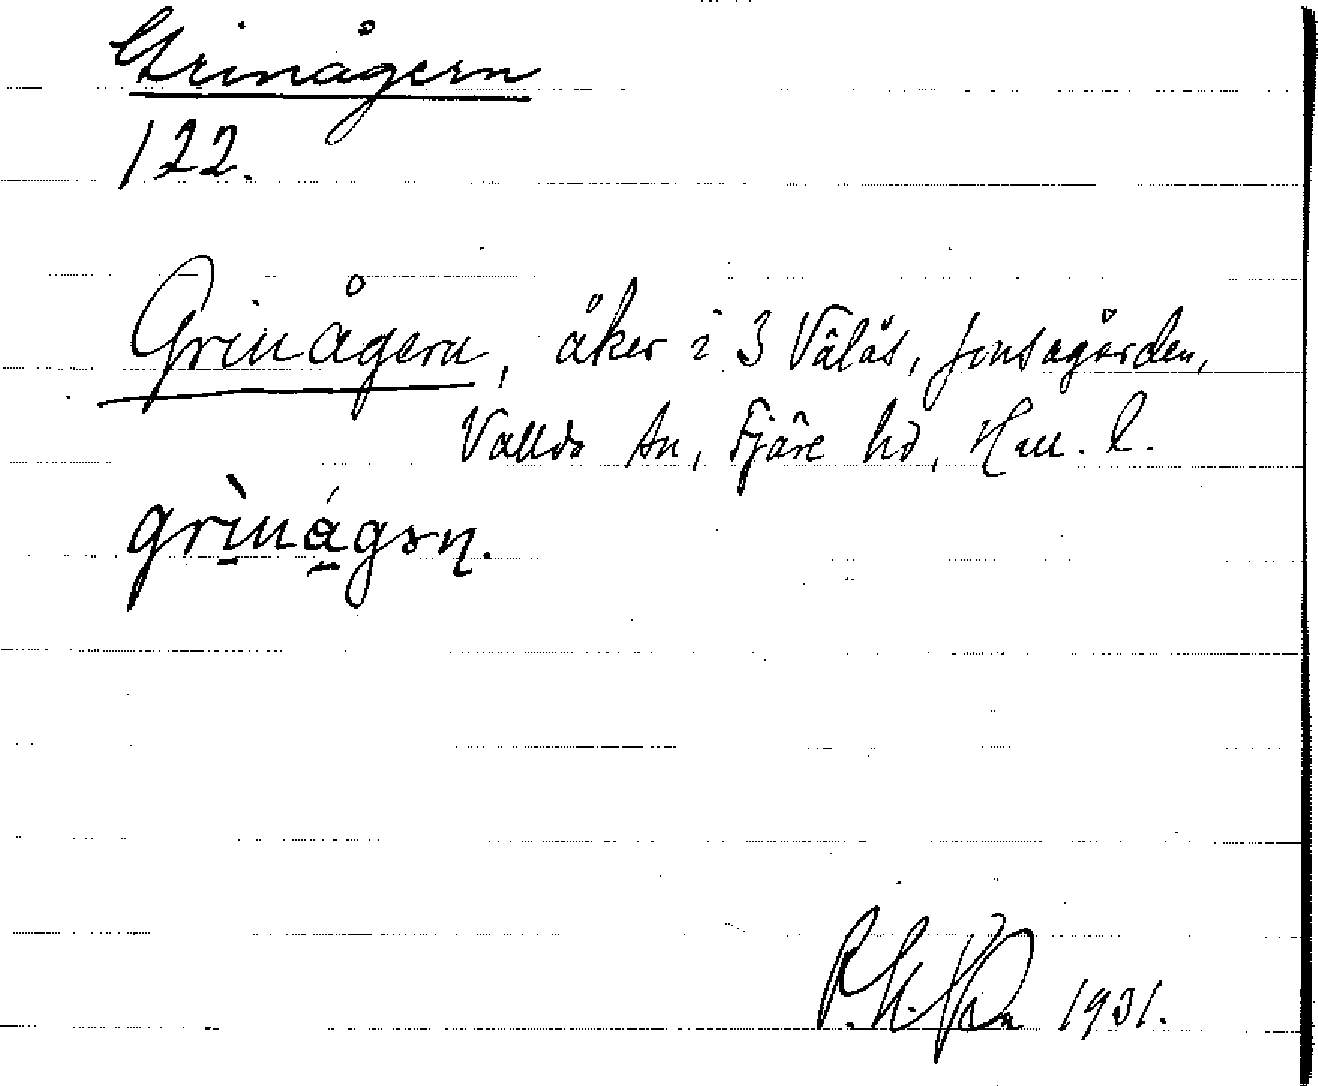 Grinågern
122.
Grinågern, åker i 3 Välås, Jonsagården,
Vallda sn, Fjäre hd, Hall. l.
grìnágərn.
1931.